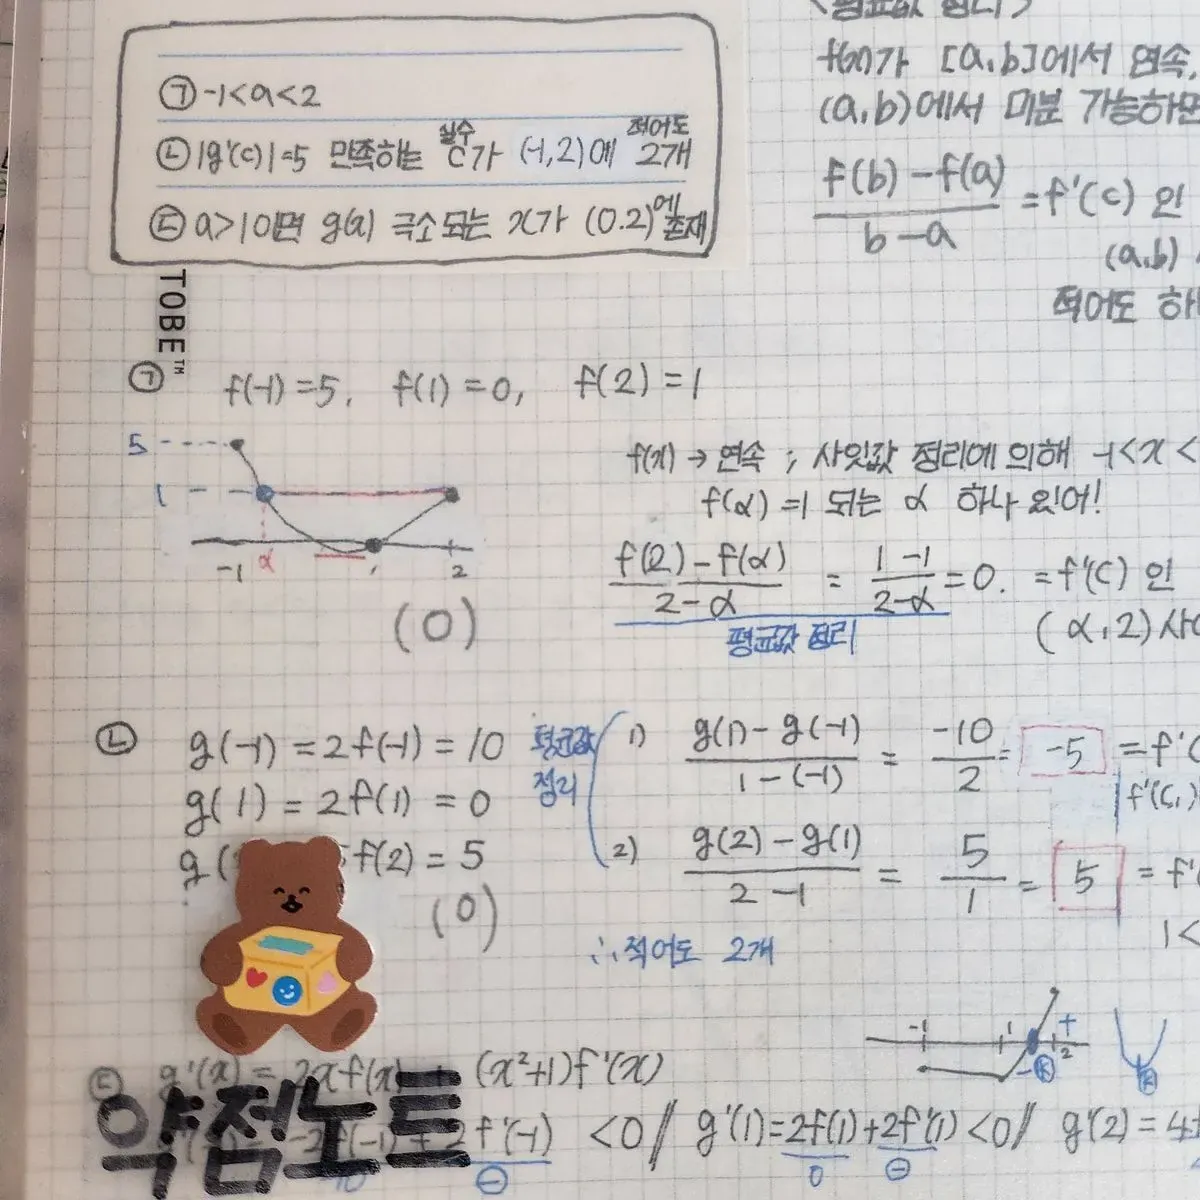 ㉠ -1<a<2
㉡ |g'(c)|=5 만족하는 실수 c가 (-1,2)에 적어도 2개
㉢ a>1이면 g(x) 극소되는 x가 (0.2)에 존재
<평균값 정리>
f(x)가 [a,b]에서 연속,
(a,b)에서 미분 가능하면
f(b)-f(a)
b-a
=f'(c) 인
(a,b)
적어도 하나
TOBE™
㉠ f(-1)=5, f(1)=0, f(2)=1
5
1
-1 α 1 2
(O)
f(x)→연속 ; 사잇값 정리에 의해 -1<x<
f(α)=1 되는 α 하나 있어!
f(2)-f(α) / 2-α = 1-1 / 2-α =0. =f'(c) 인
평균값 정리
(α,2)사이
㉡ g(-1)=2f(-1)=10
g(1)=2f(1)=0
f(2)=5
(O)
평균값 정리
1) g(1)-g(-1) / 1-(-1) = -10 / 2 = -5 =f'(
f'(C₁)
2) g(2)-g(1) / 2-1 = 5 / 1 = 5 =f'(
1<
∴적어도 2개
-1 1 + 2
- ⓚ
ⓚ
㉢ g'(x)=2xf(x)+(x²+1)f'(x)
-2f(-1)+2f'(-1) <0// g'(1)=2f(1)+2f'(1)<0// g'(2)=4
10 ⊖ 0 ⊖
약점노트